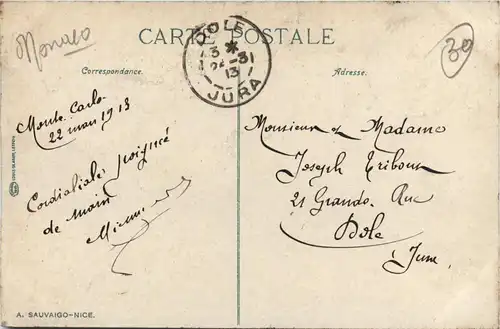 Monaco
CARTE POSTALE
30
DOLE
3 *
24-3
13
JURA
Correspondance.
Adresse.
Monte Carlo
22 mars 1913
Cordiale poignée
de main
Monsieur et Madame
Joseph Triboux
21 Grande Rue
Dole
Jura
A. SAUVAIGO-NICE.